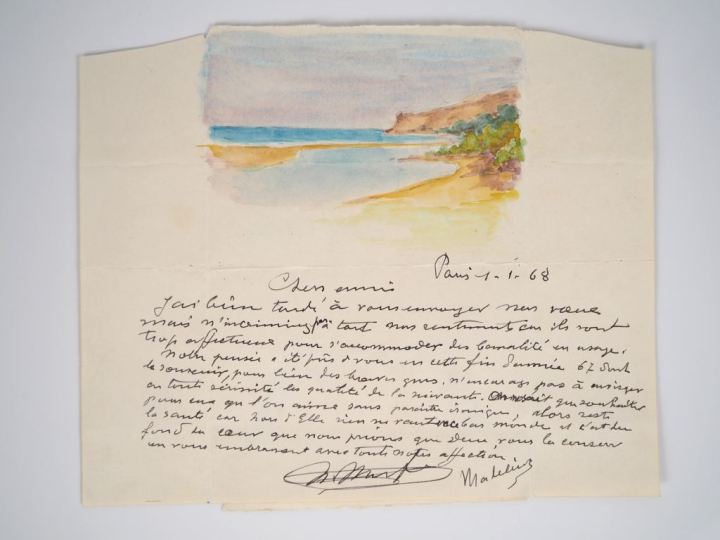 Paris 1.1.68
Chers amis
J'ai bien tardé à vous envoyer nos vœux
mais n'incriminez pas à tort nos sentiments car ils sont
trop affectueux pour s'accommoder des banalité en usage.
Notre pensée a été près de vous en cette fin d'année 67 dont
le souvenir, pour bien des braves gens, n'encourage pas à
en toute sérénité les qualité de la suivante. que souhaiter
pour ceux que l'on aime sans paraître ironique, alors reste
la santé car hors d'Elle rien ne vaut en ce bas monde et c'est du
fond du cœur que nous prions que Dieu vous la conserve
en vous embrassant avec toute notre affection
Madeleine